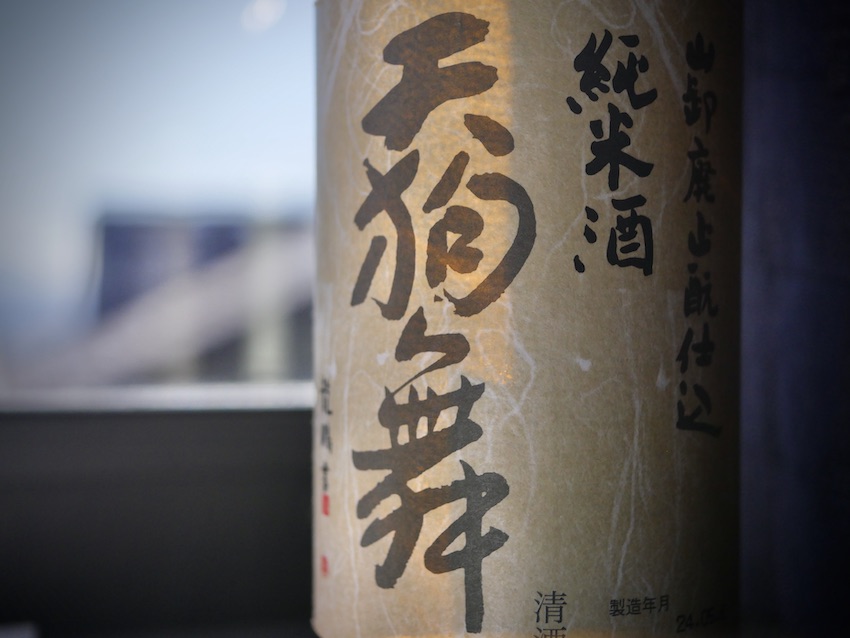 山卸廃止酛仕込
純米酒
天狗舞
清酒
製造年月
24.05